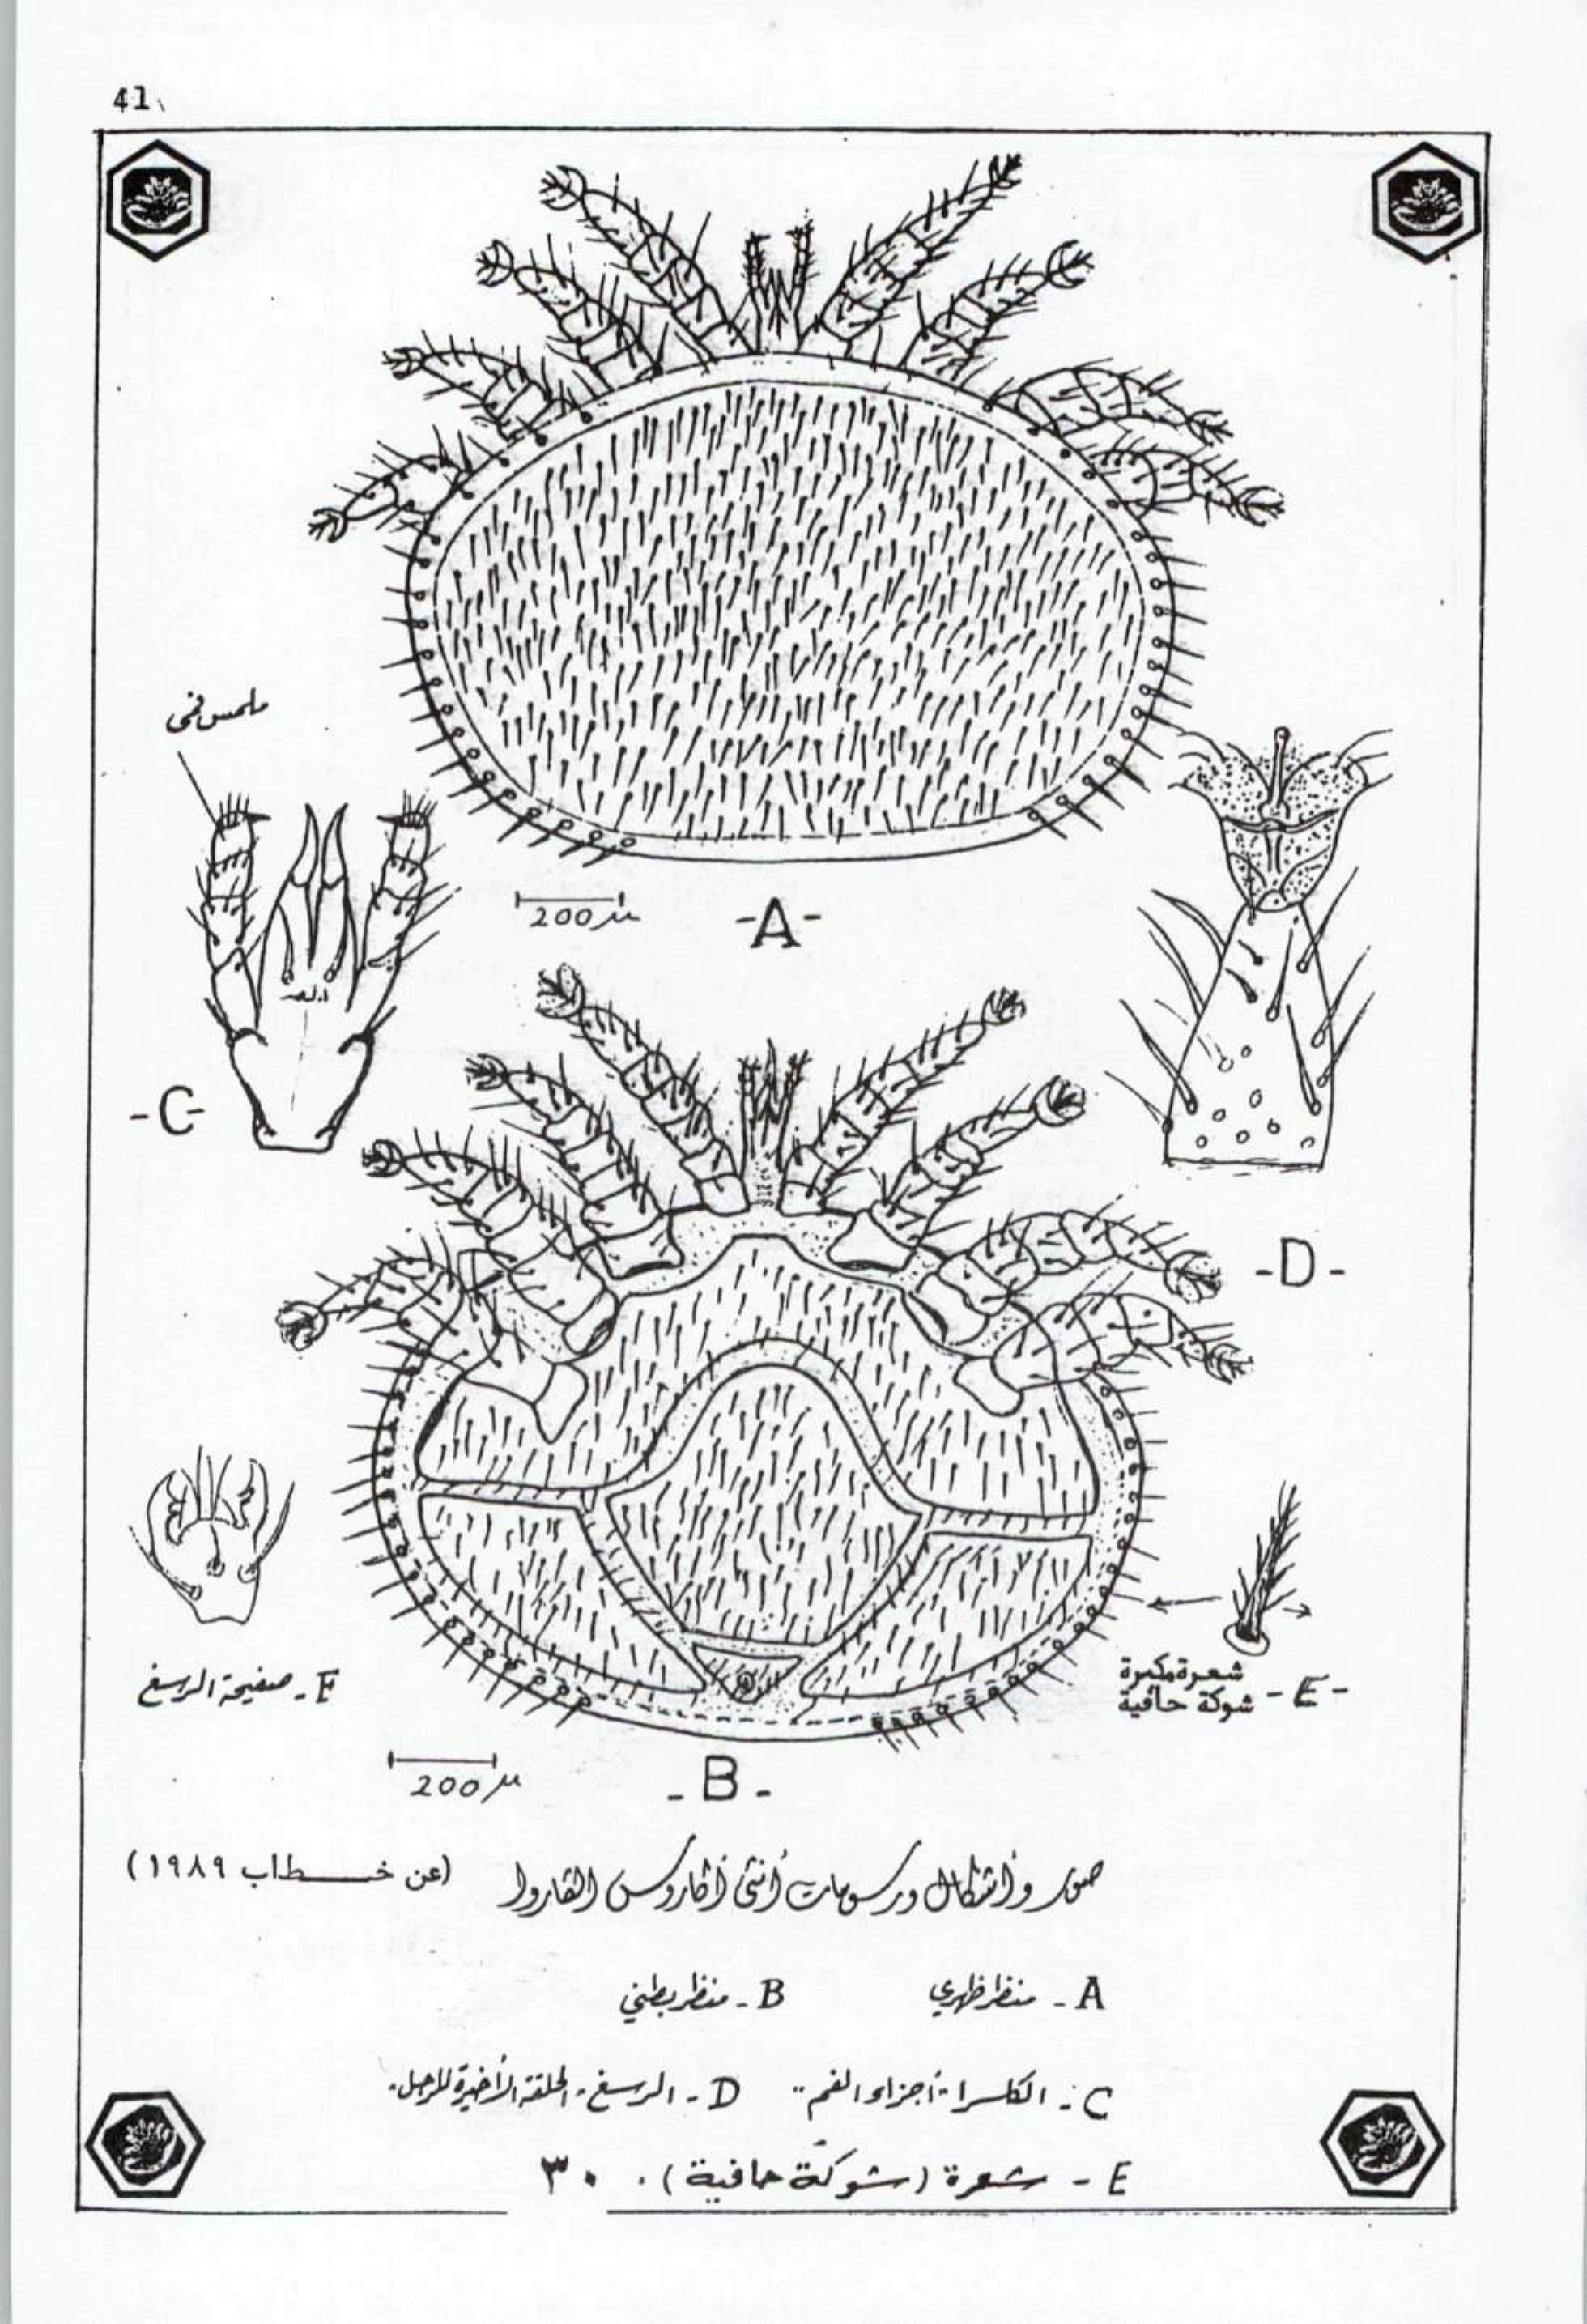 41
ملمس فمي
200 μ
-A-
-C-
-D-
F - صفيحة الرسغ
شعرة مكبرة
شوكة حافية
- E -
200 μ
- B -
صور وأشكال ورسومات أنثى أكاروس القاروا (عن خطاب ١٩٨٩)
A - منظر ظهري B - منظر بطني
C - الكلسرا "أجزاء الفم" D - الرسغ - الحلقة الأخيرة للرجل.
E - شعرة (شوكة حافية). ٣٠